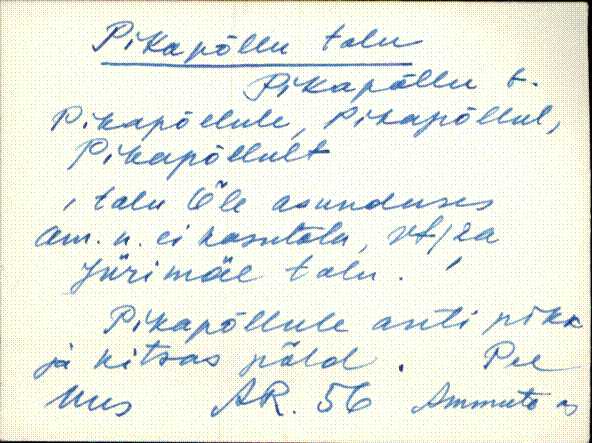 Pikapõllu talu
Pikapõllu t.
Pikapõllule, Pikapõllul,
Pikapõllult
, talu Õle asunduses
am. n. ei kasutata, vt/2a
Jürimäe talu. '
Pikapõllule anti pikk
ja kitsas põld. Pee
Uus AR. 56 Ammuta as